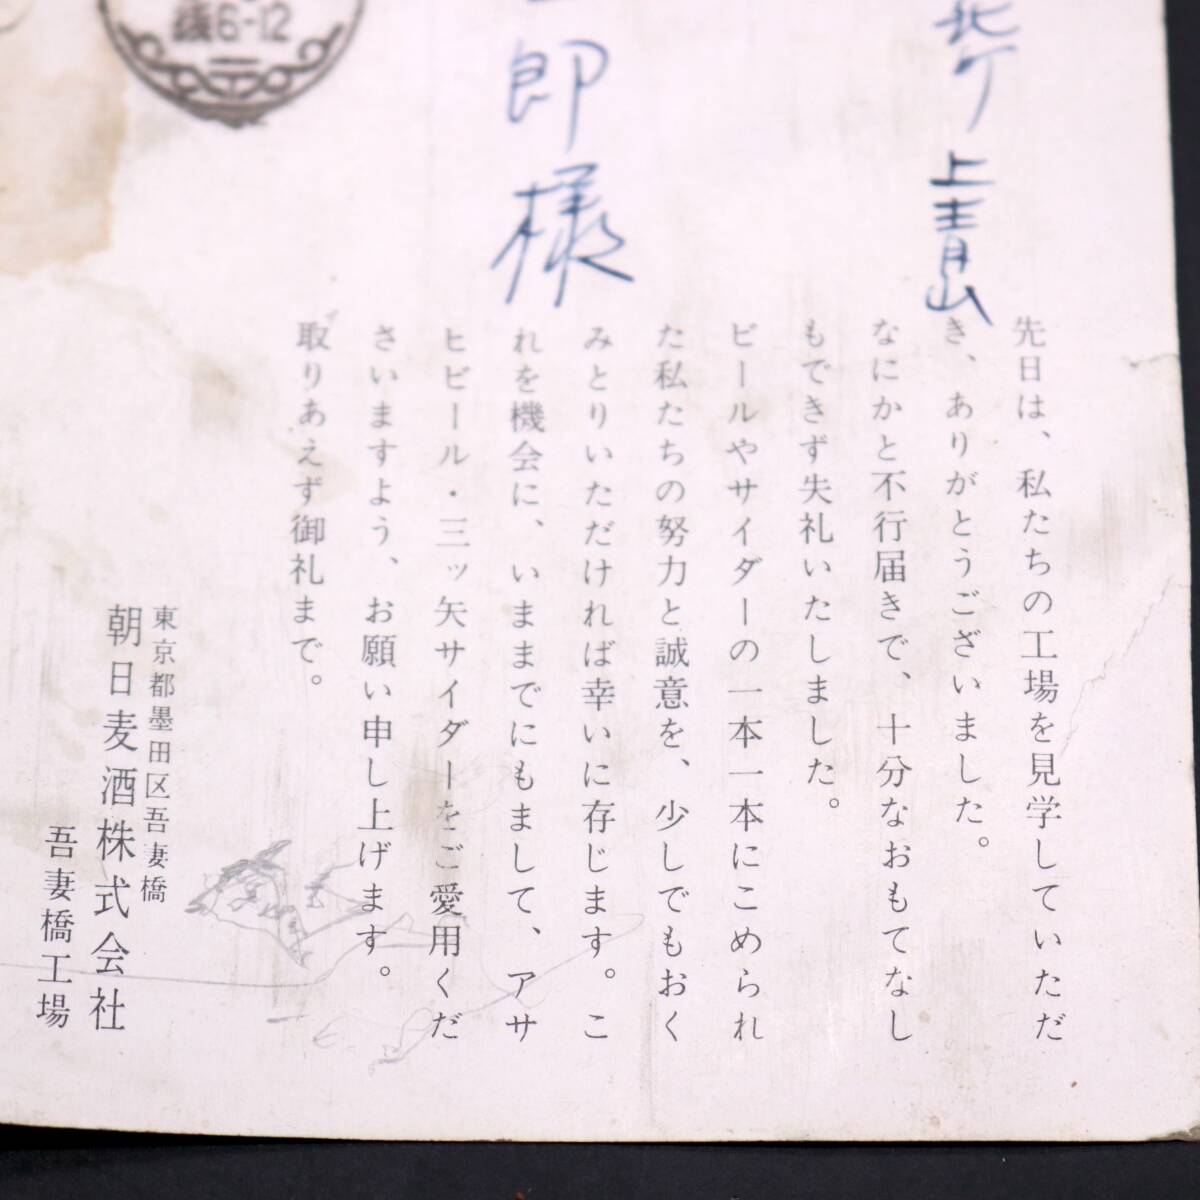 上青山
郎様
後6-12
先日は、私たちの工場を見学していただ
き、ありがとうございました。
なにかと不行届きで、十分なおもてなし
もできず失礼いたしました。
ビールやサイダーの一本一本にこめられ
た私たちの努力と誠意を、少しでもおく
みとりいただければ幸いに存じます。こ
れを機会に、いままでにもまして、アサ
ヒビール・三ッ矢サイダーをご愛用くだ
さいますよう、お願い申し上げます。
取りあえず御礼まで。
東京都墨田区吾妻橋
朝日麦酒株式会社
吾妻橋工場